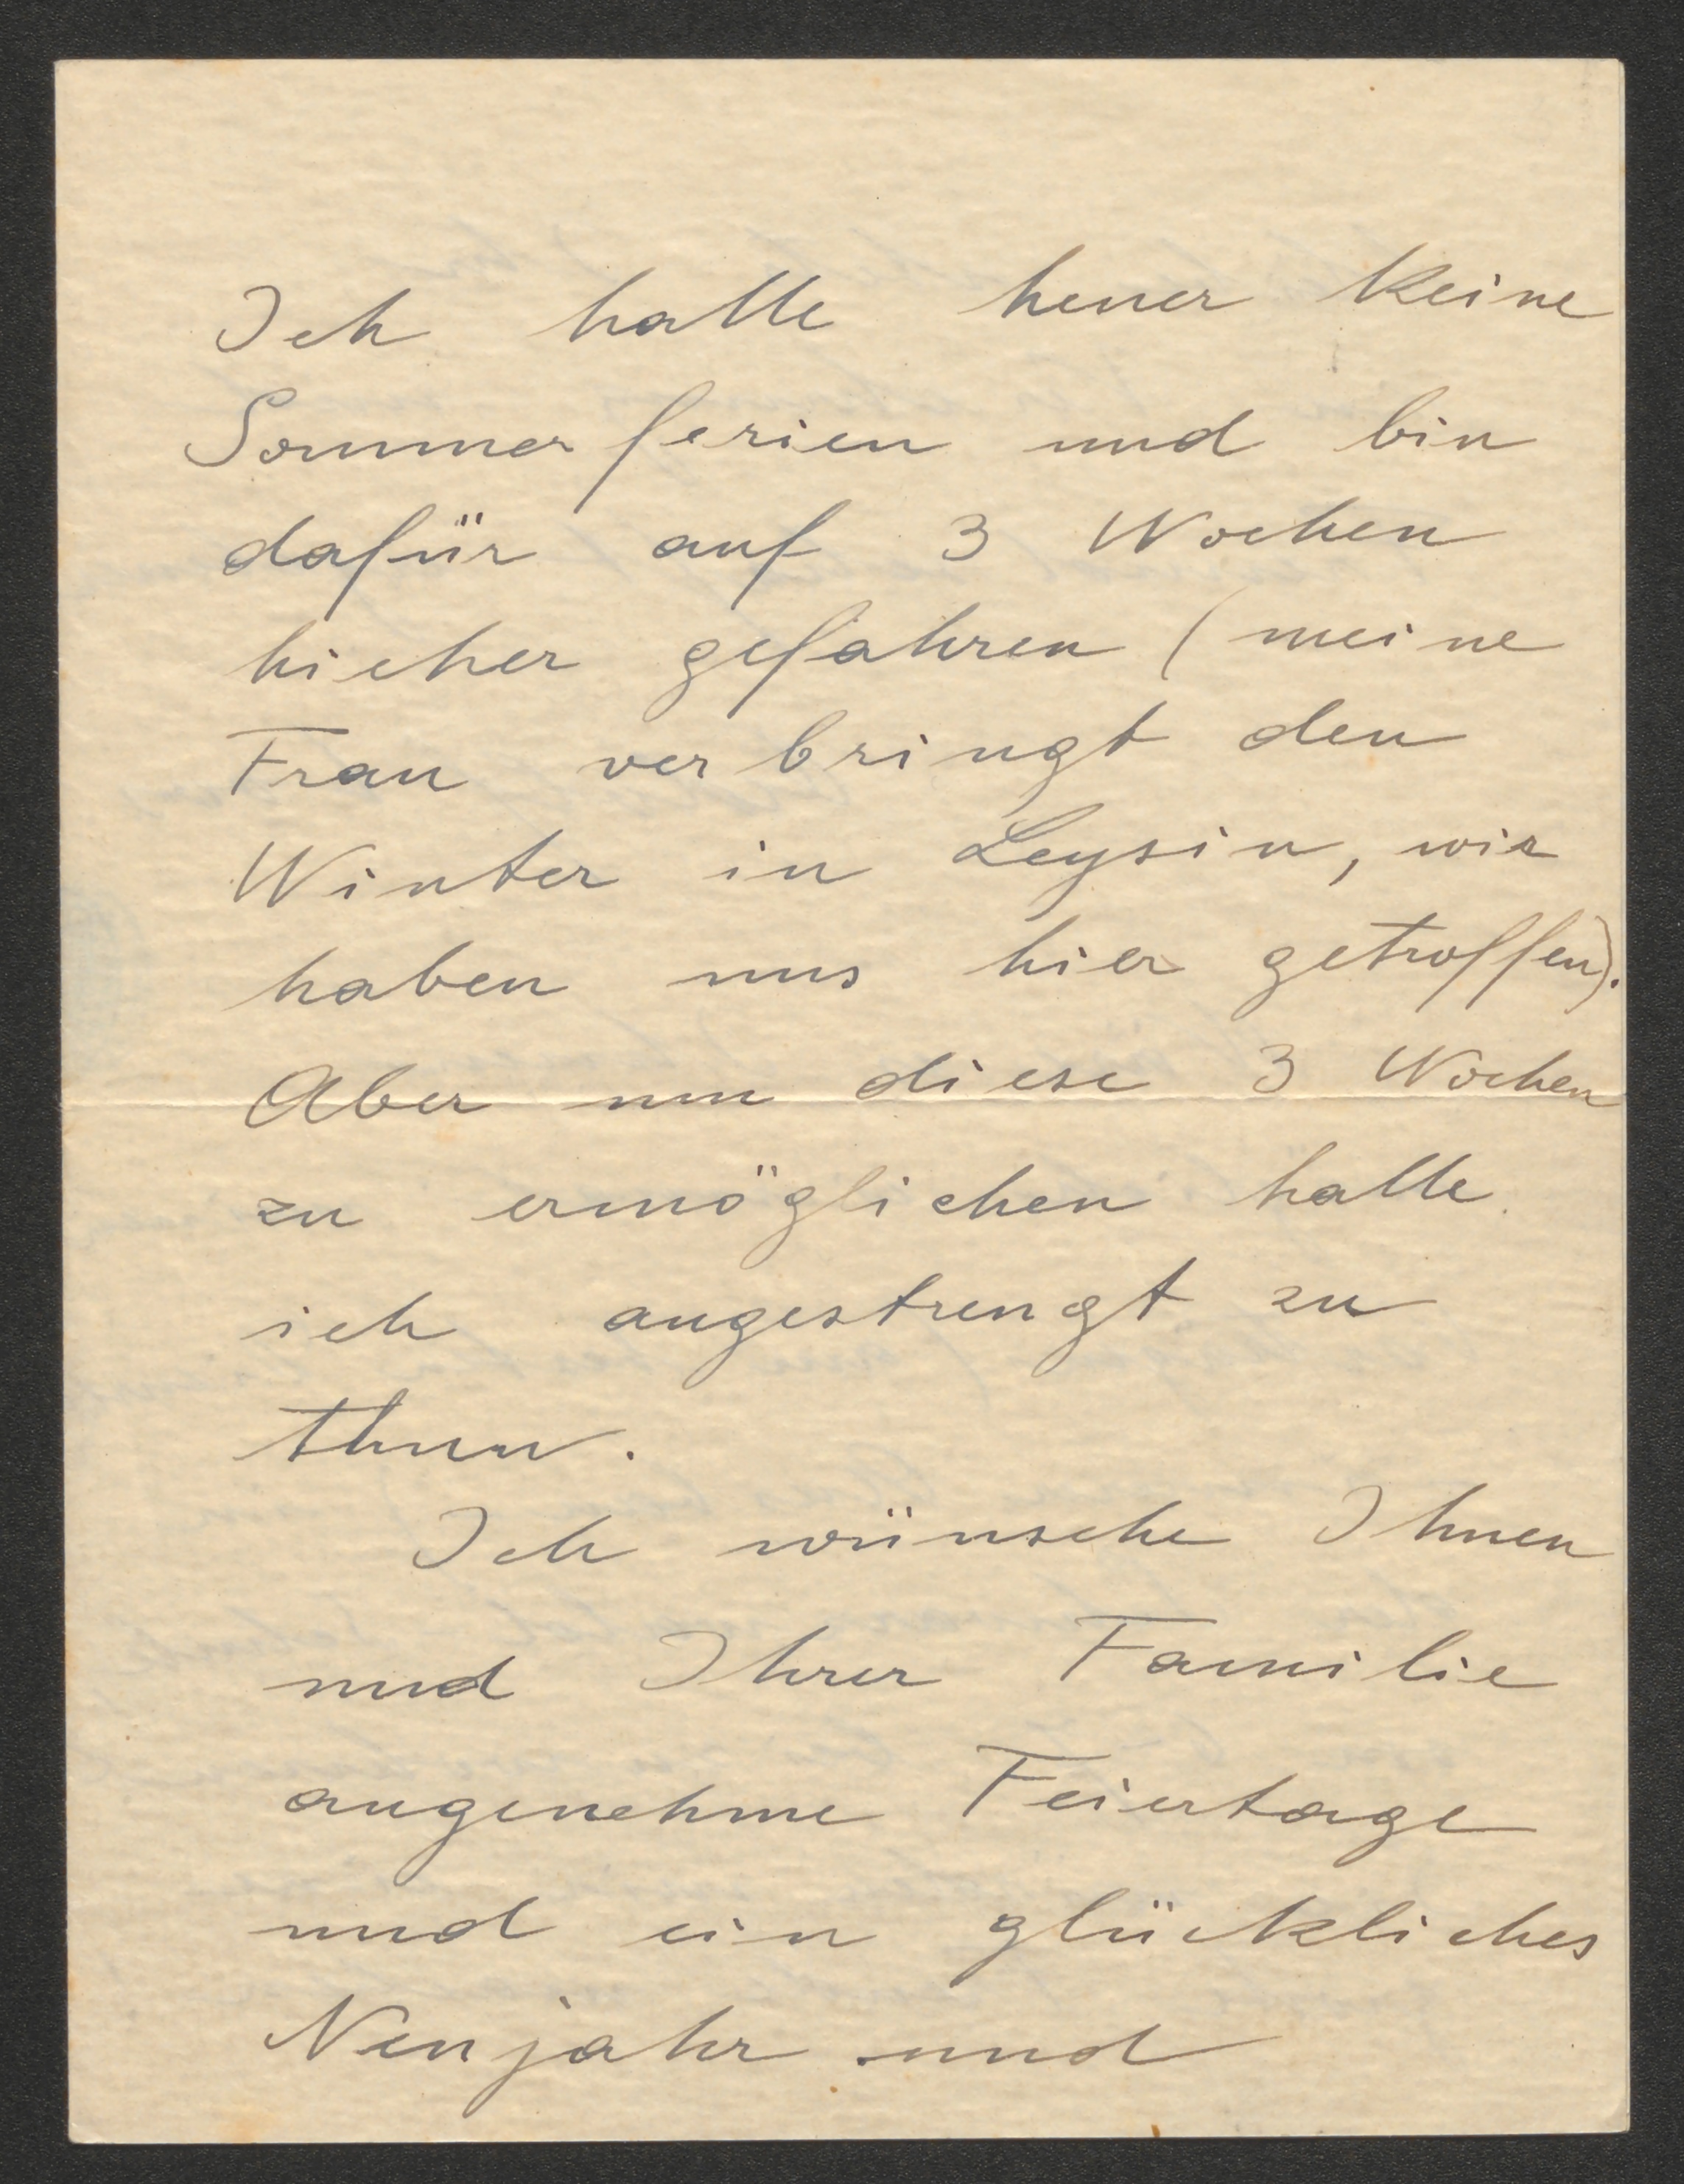 Ich hatte heuer keine
Sommerferien und bin
dafür auf 3 Wochen
hieher gefahren (meine
Frau verbringt den
Winter in Leysin, wir
haben uns hier getroffen).
Aber um diese 3 Wochen
zu ermöglichen hatte
ich angestrengt zu
thun.
Ich wünsche Ihnen
und Ihrer Familie
angenehme Feiertage
und ein glückliches
Neujahr und